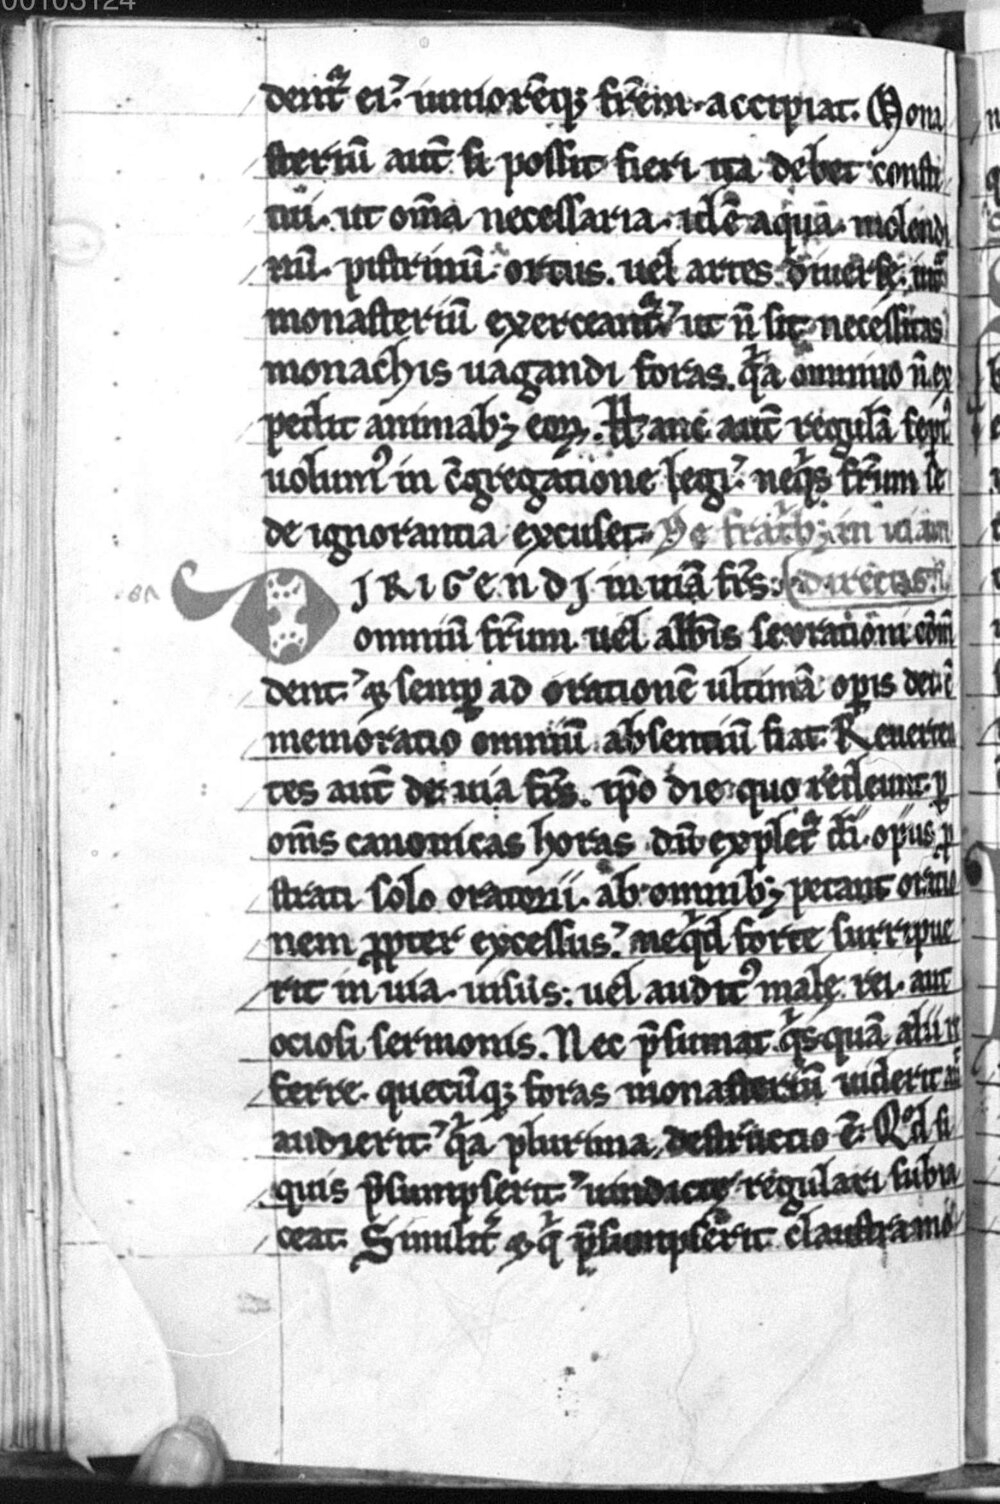 00103124
dent᷑ ei. iunioreq; fr̄em accipiat. Mona
steriū aut̄ si possit fieri ita debet consti
tui. ut om̄a necessaria. idē aqua. molendi
nū. pistrinū. ortus. uel artes diuerse. int᷑
monasteriū exerceant᷑. ut n̄ sit necessitas
monachis uagandi foras. qͥa omnino n̄ ex
pedit animab; eoꝝ. Hanc aut̄ regulā sepi᷒
uolum᷒ in c̄gregatione legi. neqͥs fr̄um se
de ignorantia excuset. De fratrib; in uiam
DIRIGENDI in uiā fr̄s. directis.
omniū fr̄um uel abb̄is se orationi cōm̄
dent. ⁊ semꝑ ad orationē ultimā oꝑis dei. ē
memoratio omniū absentiū fiat. Reuerten
tes aut̄ de uia fr̄s. ip̄o die quo redeunt. ꝑ
om̄s canonicas horas dū explet᷑ di. opus. ꝓ
strati solo oratorii. ab omnib; petant oratio
nem ꝓpter excessus. neqͥd forte surripue
rit in uia. uisus. uel audit᷒ male rei. aut
ociosi sermonis. Nec p̄sumat qͥs quā alii re
ferre. quecūq; foras monasteriū uiderit aut̄
audierit. qͥa plurima destructio ē. Qd̄ si
quis p̄sumpserit. uindicte regulari subia
ceat. Similit᷑ ⁊ qͥ p̄sumpserit claustra mo